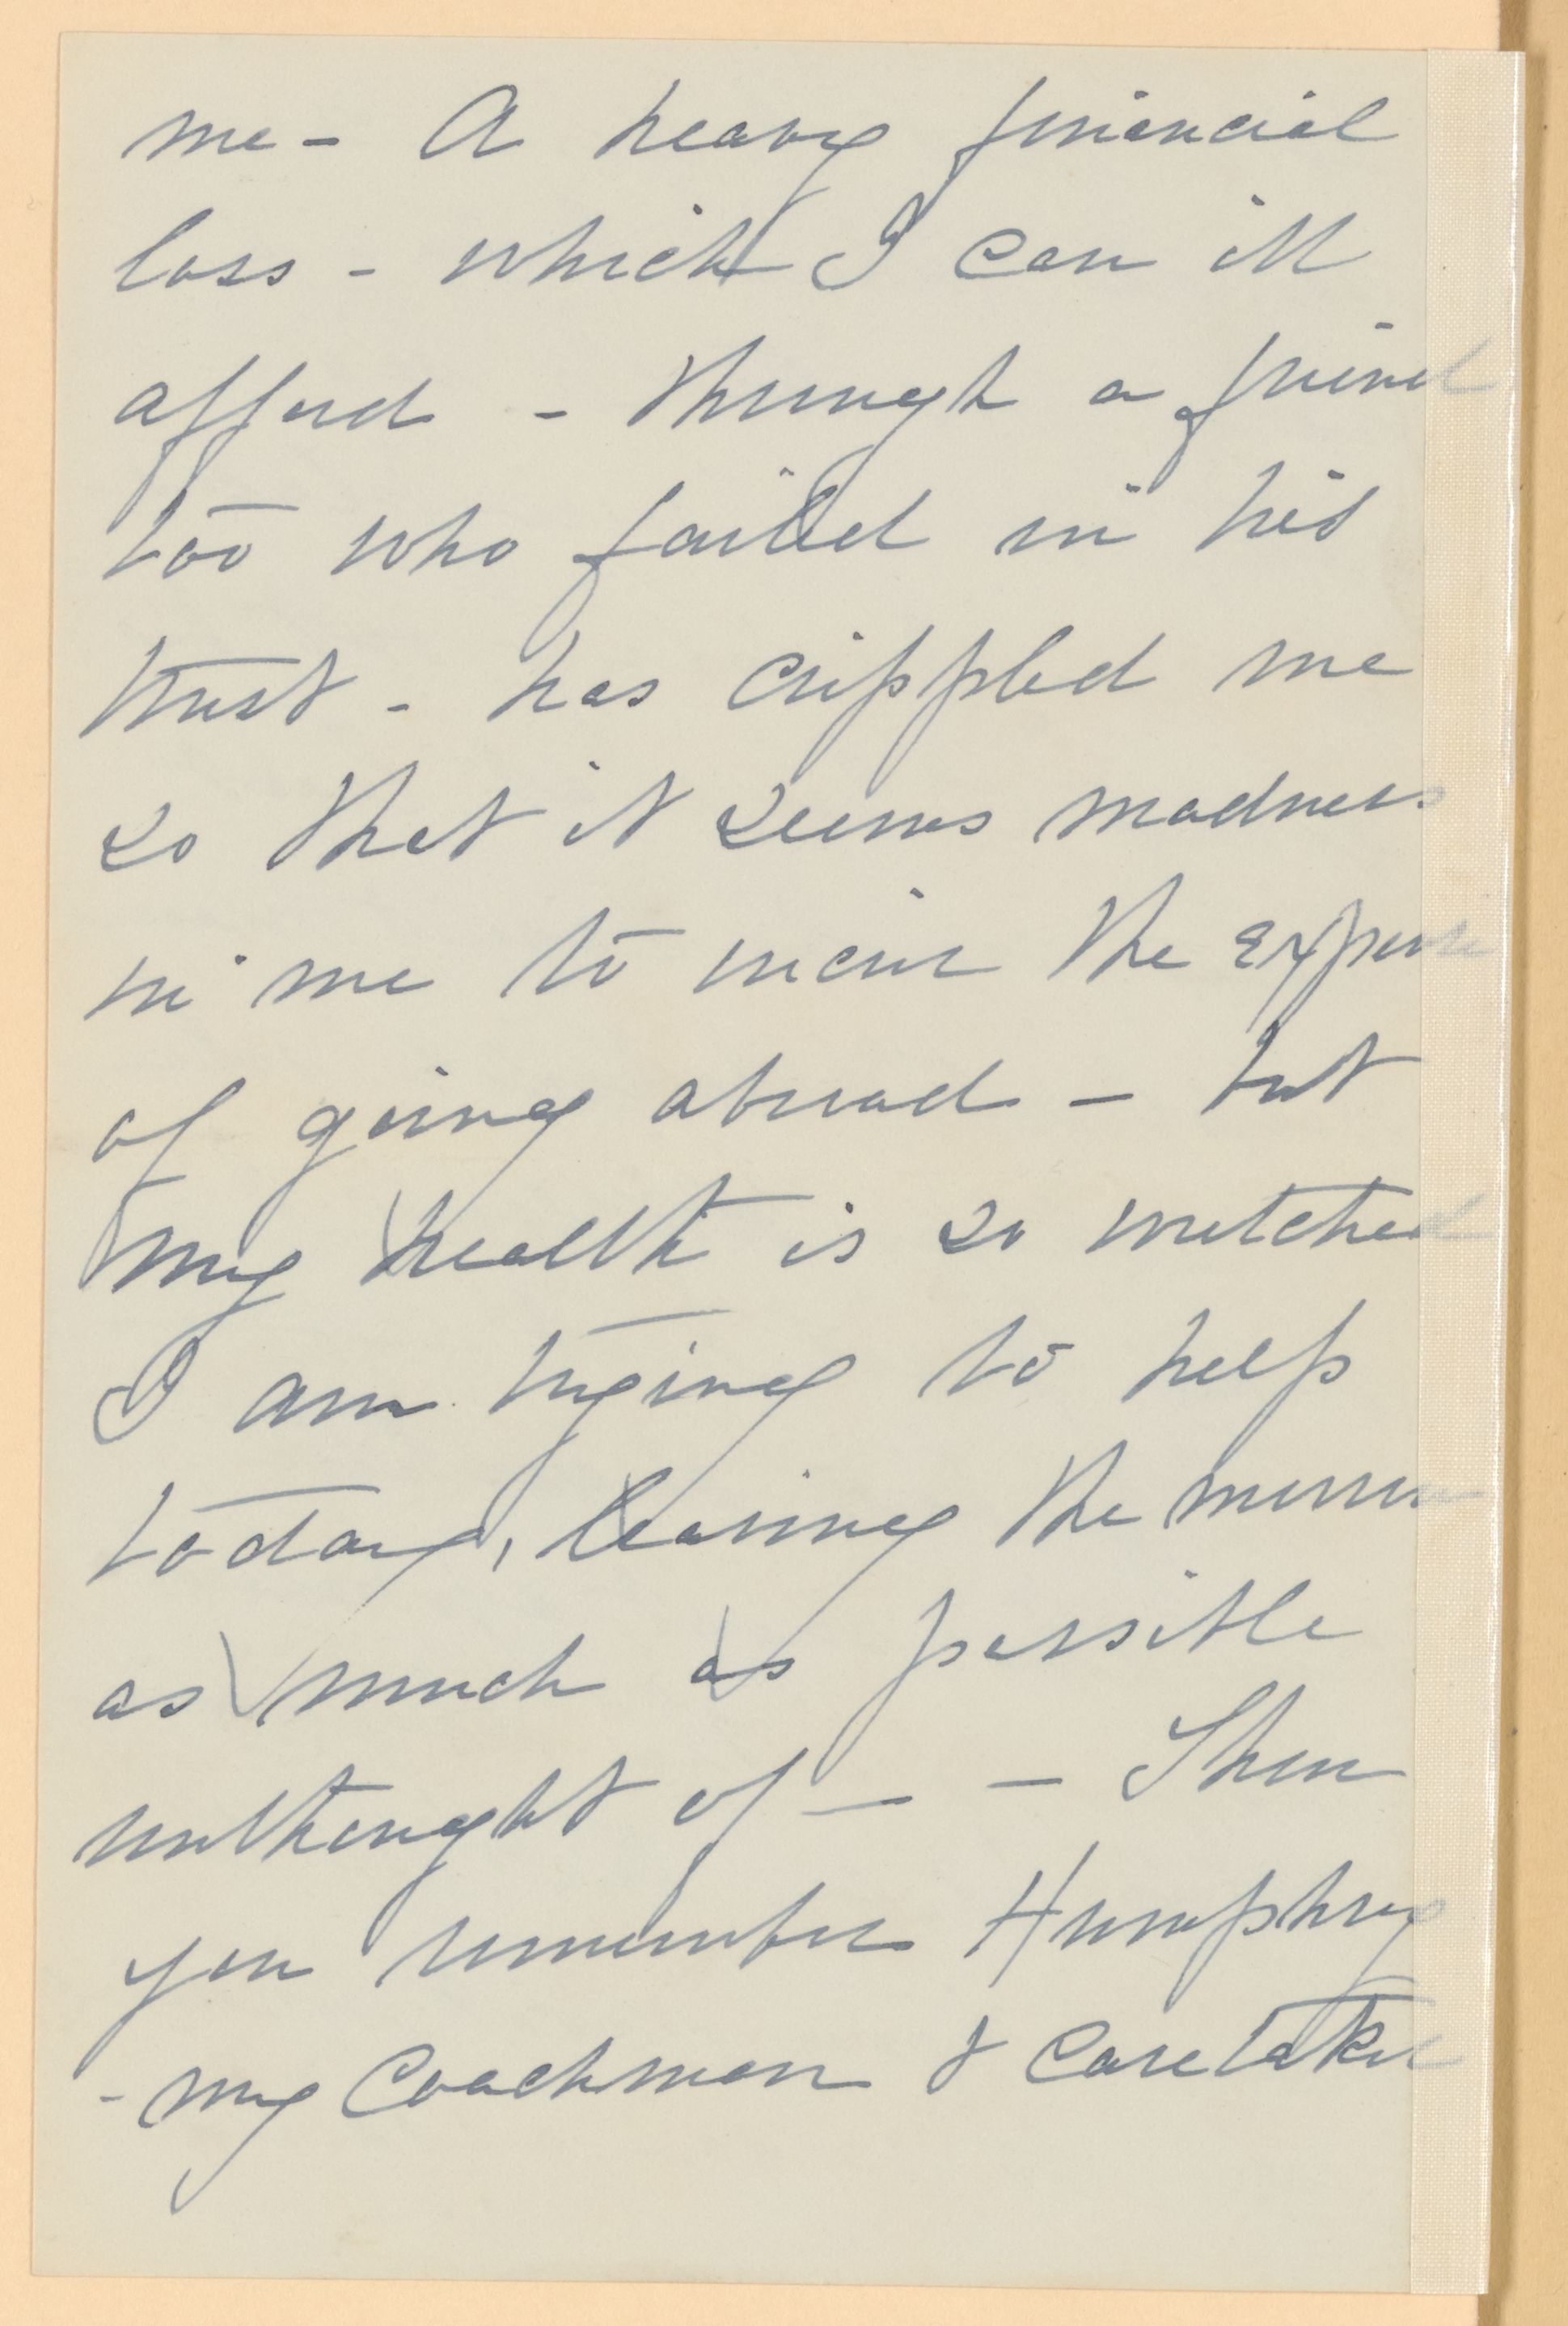 me - A heavy financial
loss - which I can ill
afford - through a friend
too who failed in his
trust - has crippled me
so that it seems madness
in me to incur the expense
of going abroad - but
my health is so wretched
I am trying to help
today, leaving the morrow
as much as possible
unthought of - - Then
you remember Humphrey
- my Coachman & Caretaker